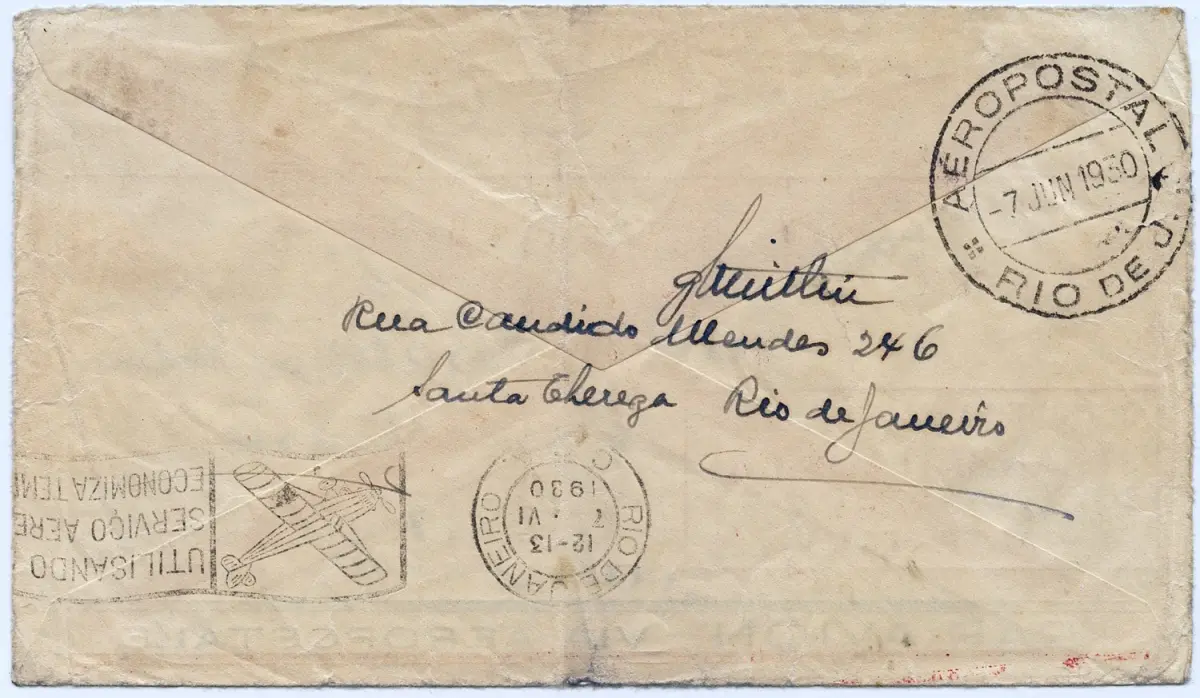 AÉROPOSTALE
-7 JUN 1930
RIO DE J.
Rua Candido Mendes 246
Santa Thereza Rio de Janeiro
RIO DE JANEIRO
12-13
7 . VI
1930
C
UTILISANDO
SERVIÇO AERE
ECONOMIZA TEM